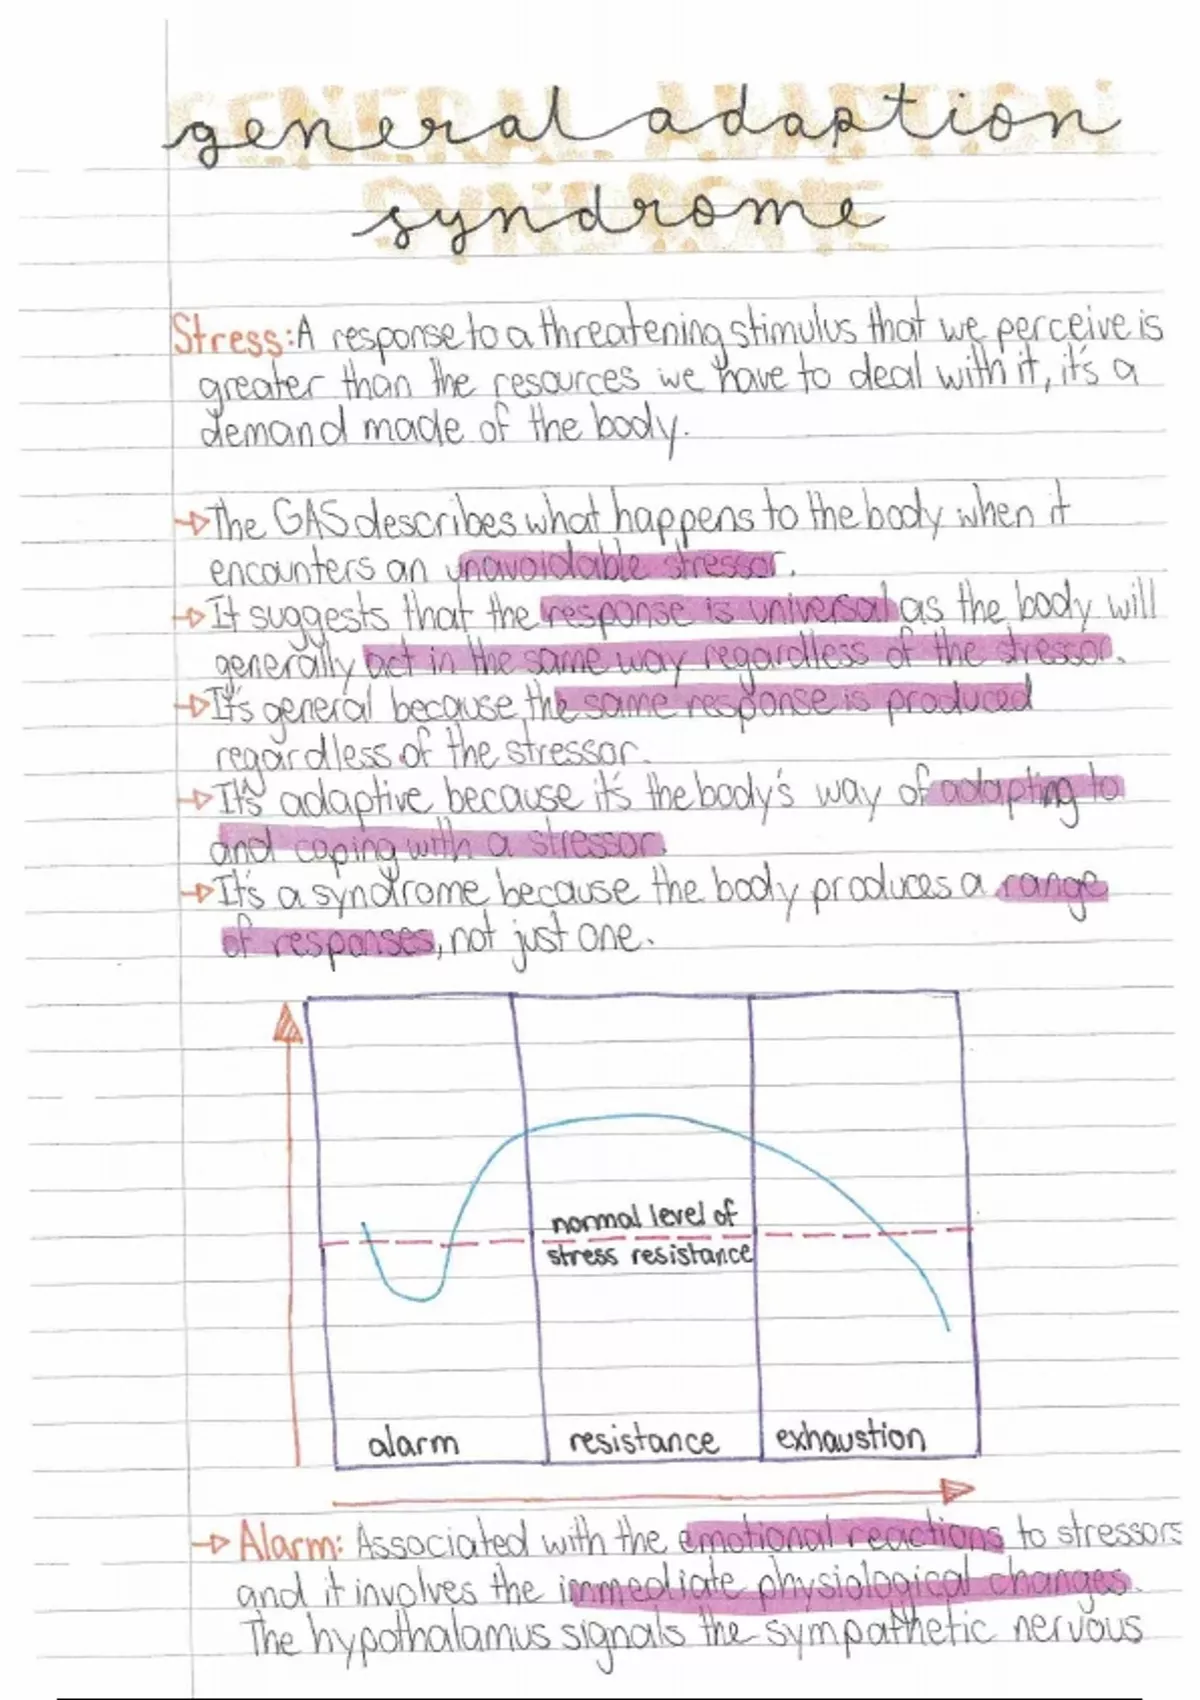 general adaption
syndrome
Stress: A response to a threatening stimulus that we perceive is
greater than the resources we have to deal with it, it's a
demand made of the body.
→The GAS describes what happens to the body when it
encounters an unavoidable stressor.
→It suggests that the response is universal as the body will
generally act in the same way regardless of the stressor.
→It's general because the same response is produced
regardless of the stressor.
→It's adaptive because it's the body's way of adapting to
and coping with a stressor.
→It's a syndrome because the body produces a range
of responses, not just one.
normal level of
stress resistance
alarm resistance exhaustion
→Alarm: Associated with the emotional reactions to stressors
and it involves the immediate physiological changes.
The hypothalamus signals the sympathetic nervous